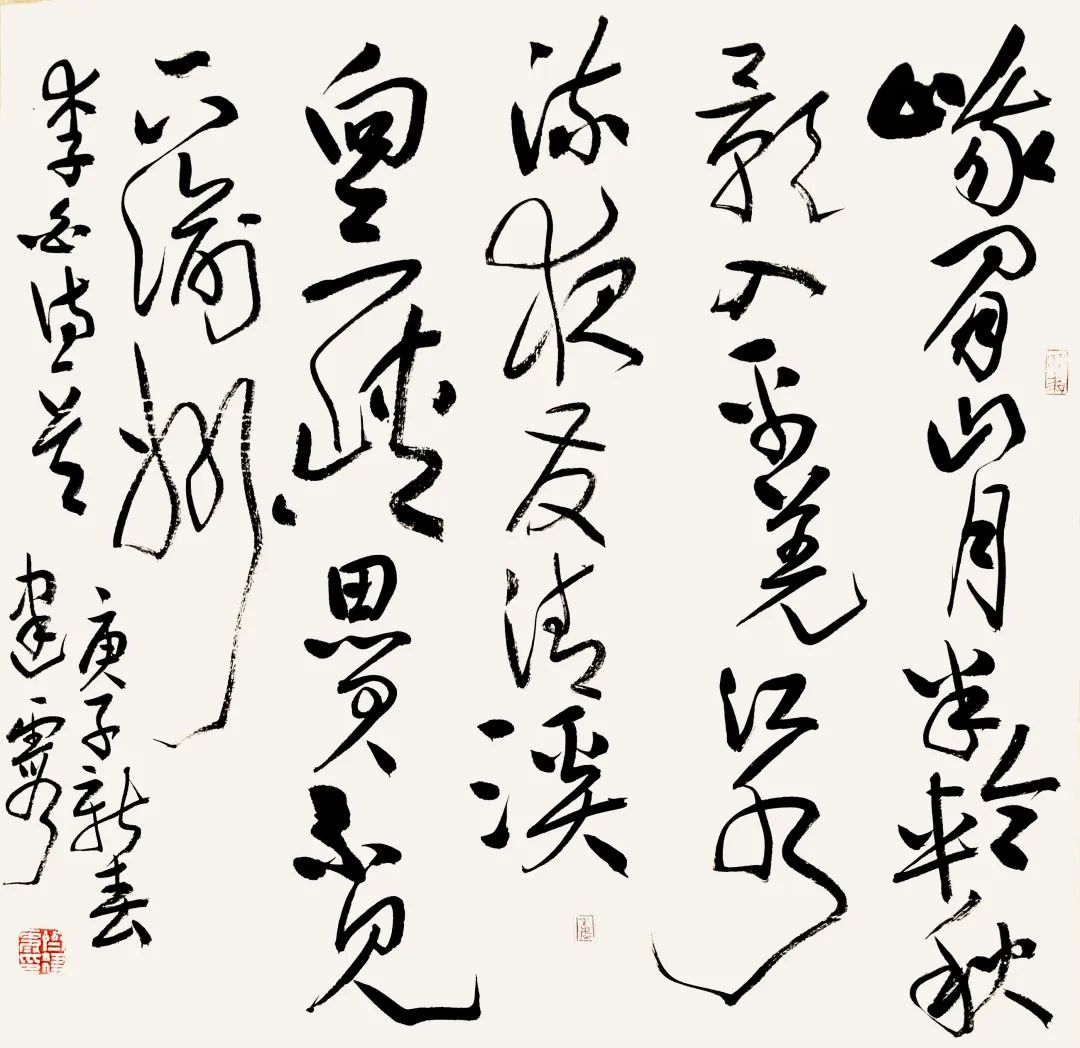 峨眉山月半轮秋
影入平羌江水
流夜发清溪
向三峡思君不见
下渝州
李白诗一首
庚子新春
建霞